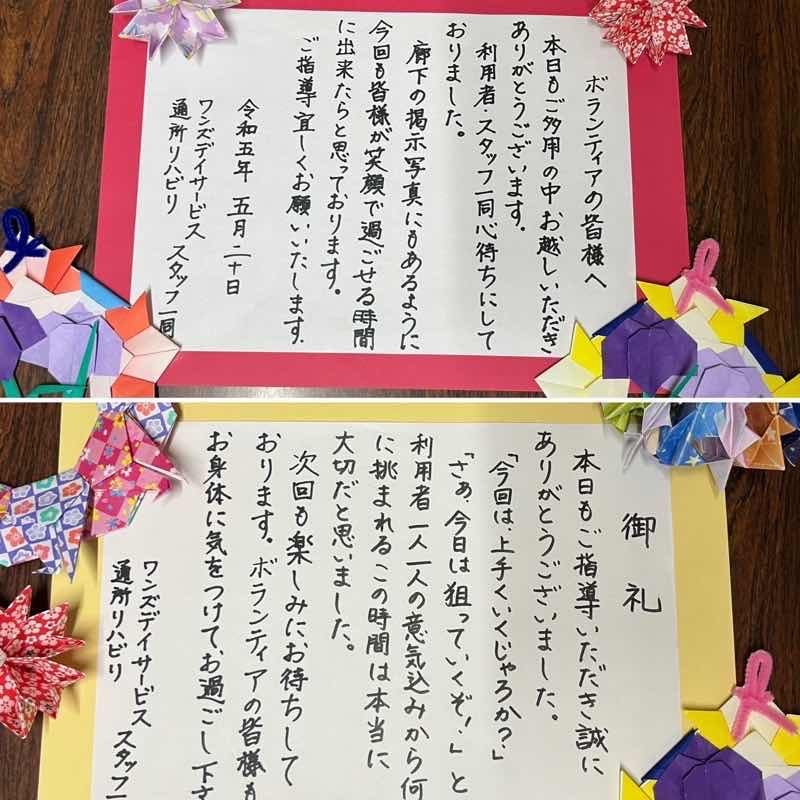 ボランティアの皆様へ
本日もご多用の中お越しいただき
ありがとうございます。
利用者・スタッフ一同心待ちにして
おりました。
廊下の掲示写真にもあるように
今回も皆様が笑顔で過ごせる時間
に出来たらと思っております。
ご指導宜しくお願いいたします。
令和五年 五月二十日
ワンズデイサービス
通所リハビリ スタッフ一同
御礼
本日もご指導いただき誠に
ありがとうございました。
「今回は、上手くいくじゃろか?」
「さぁ、今日は狙っていくぞ!」と
利用者一人一人の意気込みから何
に挑まれるこの時間は本当に
大切だと思いました。
次回も楽しみにお待ちして
おります。ボランティアの皆様も
お身体に気をつけて、お過ごし下さ
ワンズデイサービス
通所リハビリ スタッフ一